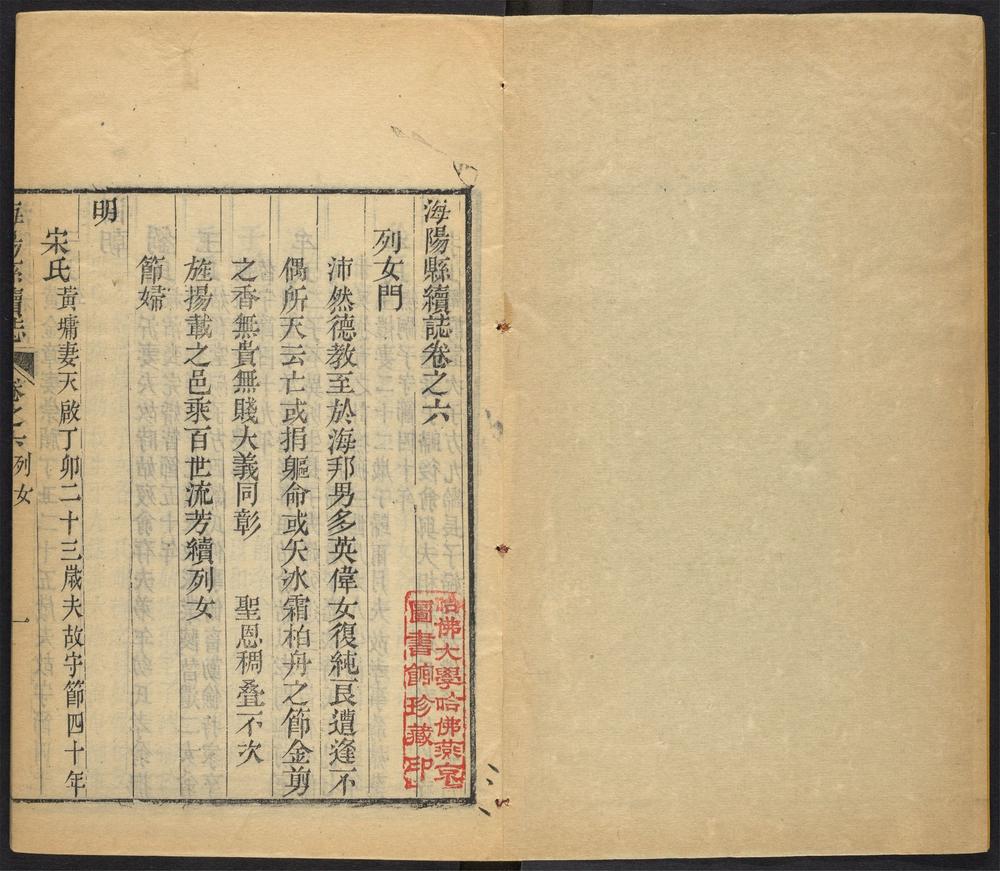 海陽縣續誌卷之六
列女門
沛然德教至於海邦男多英偉女復純良遭逢不
偶所天云亡或捐軀命或矢冰霜柏舟之節金剪
之香無貴無賤大義同彰　聖恩稠叠不次
旌揚載之邑乘百世流芳續列女
節婦
明
宋氏黃墉妻天啟丁卯二十三歲夫故守節四十年
海陽縣續誌　卷之六列女　一
哈佛大學哈佛燕京
圖書館珍藏印